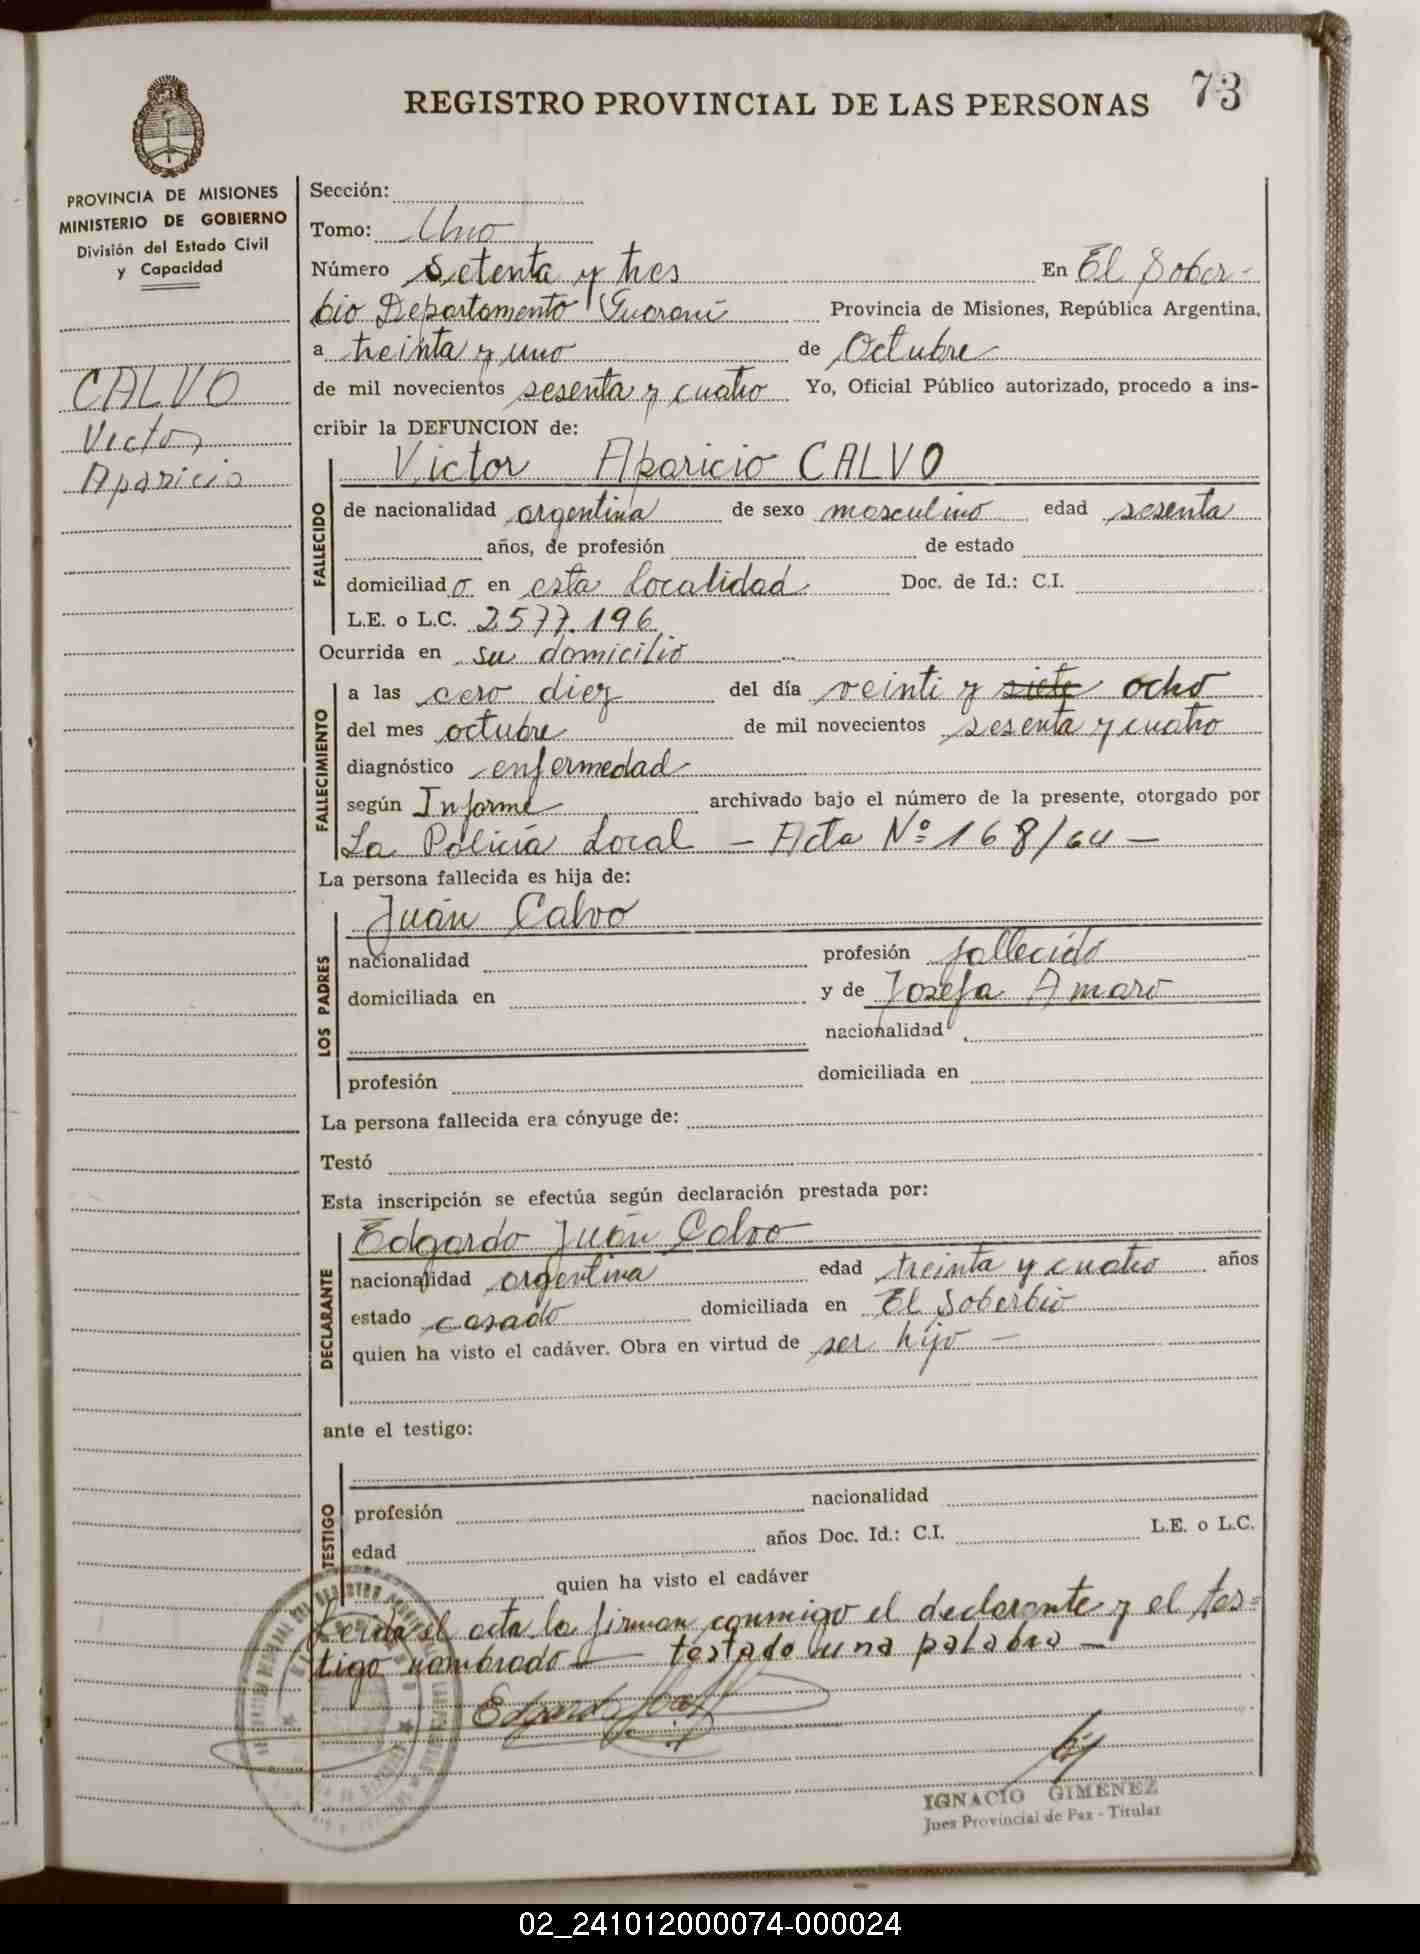 73
REGISTRO PROVINCIAL DE LAS PERSONAS
PROVINCIA DE MISIONES
MINISTERIO DE GOBIERNO
División del Estado Civil
y Capacidad
CALVO
Victor
Aparicio
Sección:
Tomo: Uno
Número Setenta y tres En El Sober-
bio Departamento Guaraní Provincia de Misiones, República Argentina,
a treinta y uno de Octubre
de mil novecientos sesenta y cuatro Yo, Oficial Público autorizado, procedo a ins-
cribir la DEFUNCION de:
Victor Aparicio CALVO
FALLECIDO
de nacionalidad argentina de sexo masculino edad sesenta
años, de profesión de estado
domiciliado en esta localidad Doc. de Id.: C.I.
L.E. o L.C. 2577.196
Ocurrida en su domicilio
FALLECIMIENTO
a las cero diez del día veinti y siete ocho
del mes octubre de mil novecientos sesenta y cuatro
diagnóstico enfermedad
según Informe archivado bajo el número de la presente, otorgado por
La Policía Local - Acta Nº 168/64 -
La persona fallecida es hija de:
Juán Calvo
LOS PADRES
nacionalidad profesión fallecido
domiciliada en y de Josefa Amaro
nacionalidad
profesión domiciliada en
La persona fallecida era cónyuge de:
Testó
Esta inscripción se efectúa según declaración prestada por:
Edgardo Juán Calvo
DECLARANTE
nacionalidad argentina edad treinta y cuatro años
estado casado domiciliada en El Soberbio
quien ha visto el cadáver. Obra en virtud de ser hijo -
ante el testigo:
TESTIGO
profesión nacionalidad
edad años Doc. Id.: C.I. L.E. o L.C.
quien ha visto el cadáver
Leida el acta la firman conmigo el declarante y el tes=
tigo nombrado - testado una palabra -
Edgardo
IGNACIO GIMENEZ
Juez Provincial de Paz - Titular
02_241012000074-000024